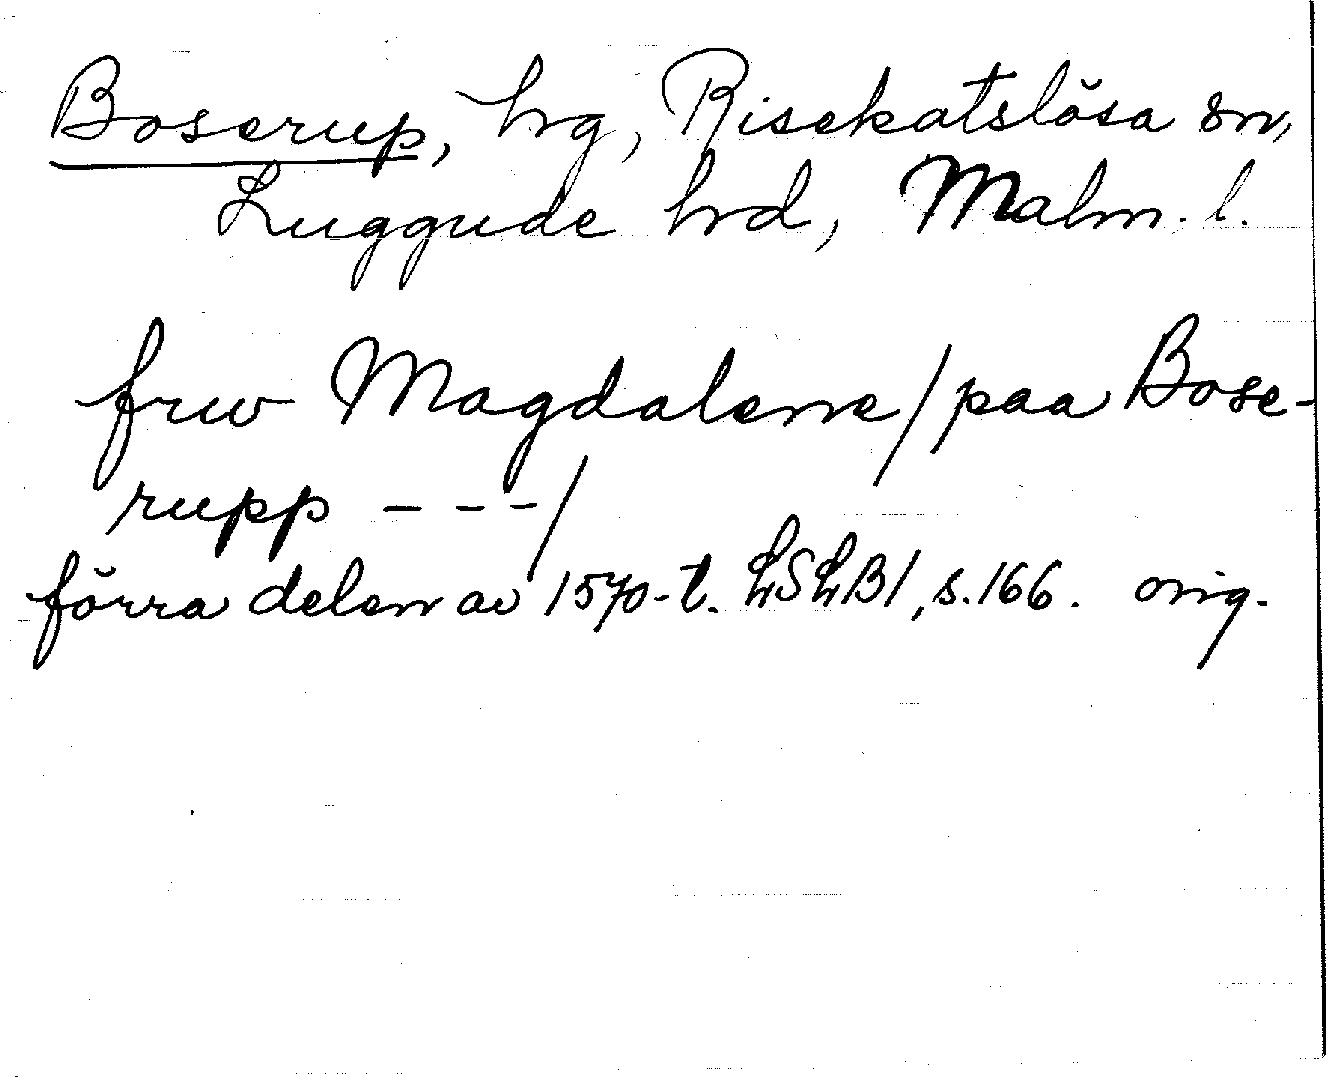 Boserup, hg, Risekatslösa sn,
Luggude hrd, Malm. l.
frw Magdalene/paa Bose-
rupp - - -/
förra delen av 1570-t. LSLB1, s. 166. orig.